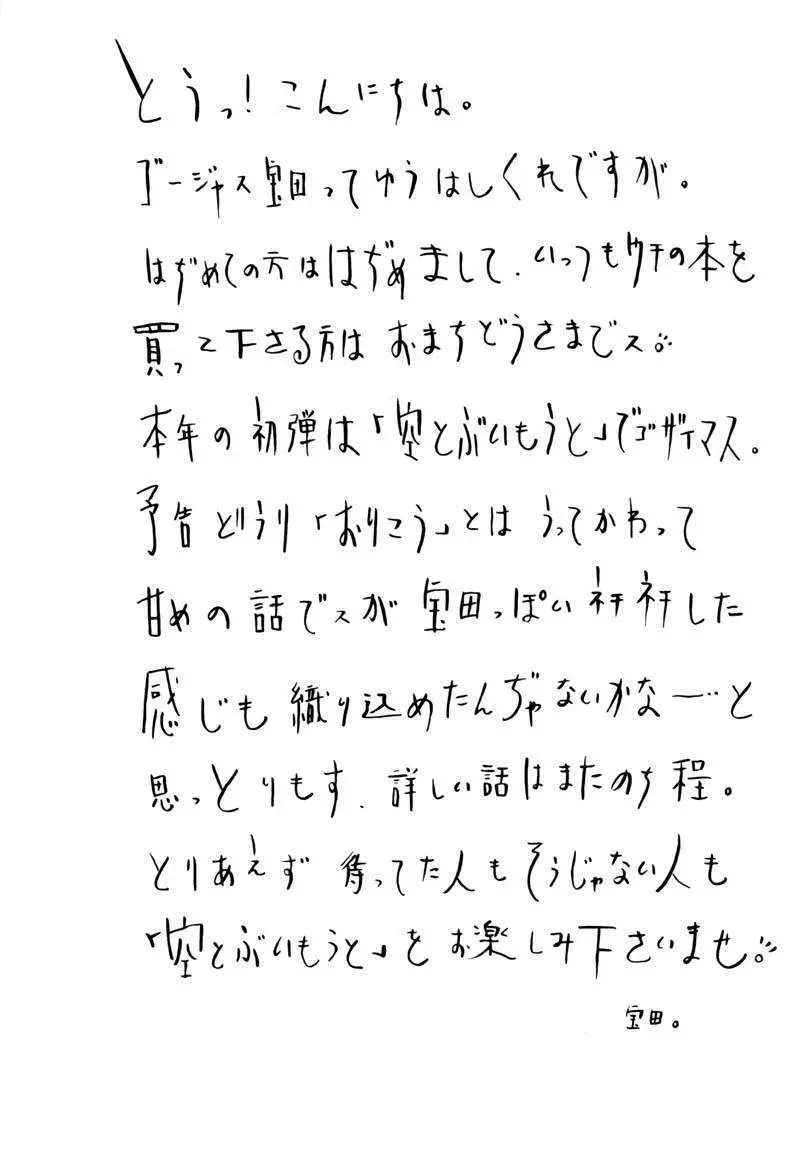 とうっ!こんにちは。
ゴージャス宝田ってゆうはしくれですが。
はぢめての方ははぢめまして、いっつもウチの本を
買って下さる方はおまちどうさまでス。
本年の初弾は「空とぶいもうと」でゴザイマス。
予告どうり「おりこう」とはうってかわって
甘めの話でスが宝田っぽいネチネチした
感じも織り込めたんぢゃないかなー…と
思っとりもす、詳しい話はまたのち程。
とりあえず待ってた人もそうじゃない人も
「空とぶいもうと」をお楽しみ下さいませ。
宝田。